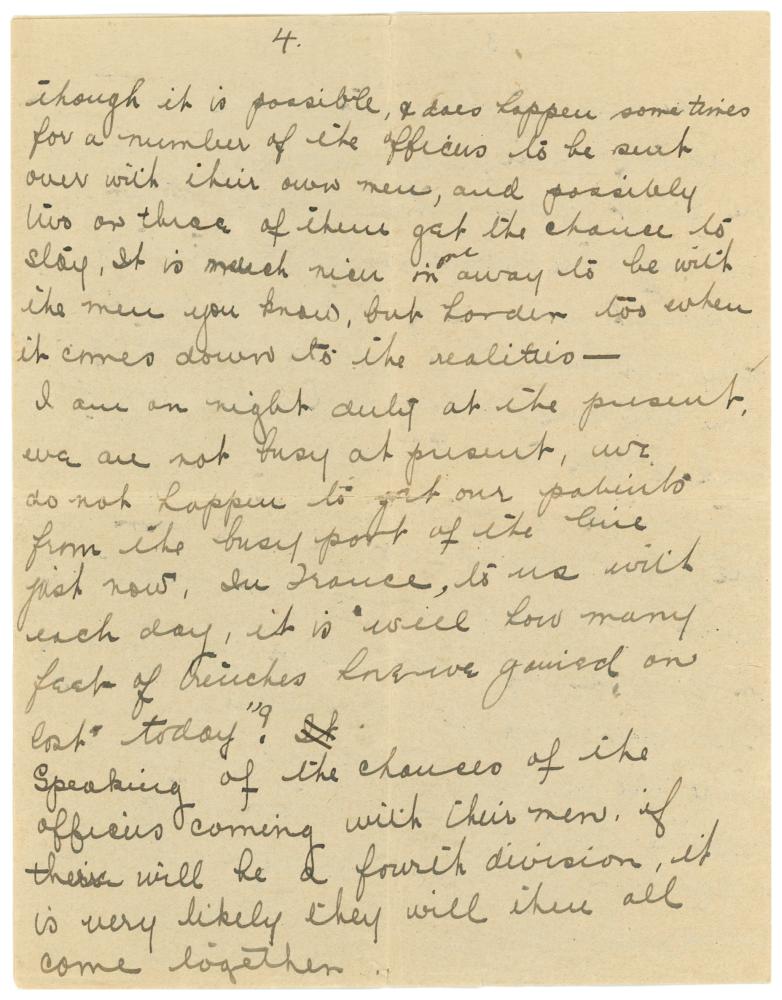 4.
though it is possible, & does happen some times
for a number of the officers to be sent
over with their own men, and possibly
two or three of them get the chance to
stay, It is much nicer in one away to be with
the men you know, but harder too when
it comes down to the realities—
I am on night duty at the present,
we are not busy at present, we
do not happen to get our patients
from the busy part of the line
just now, In France, to us with
each day, it is "well how many
feet of trenches have we gained or
lost today"?
Speaking of the chances of the
officers coming with their men. if
there will be a fourth division, it
is very likely they will then all
come together.